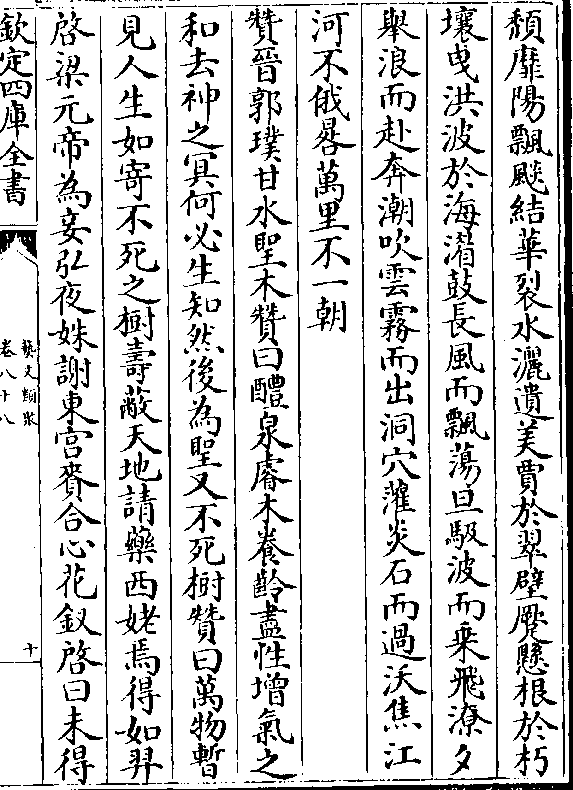 頽靡陽飄颷結華裂水灑遺美賈於翠壁蹷懸根於朽
壤曵洪波於海㵎鼓長風而飄蕩旦馺波而乗飛潦夕
舉浪而赴奔潮吹雲霧而出洞穴蕯炎石而過沃焦江
河不俄晷萬里不一朝
贊晉郭璞甘水聖木贊曰醴泉睿木養齡盡性增氣之
和去神之冥何必生知然後為聖又不死樹贊曰萬物暫
見人生如寄不死之樹壽敝天地請藥西姥焉得如羿
啓梁元帝為妾弘夜姝謝東宫賚合心花釵啓曰未得
欽定四庫全書
藝文類聚
卷八十八
十